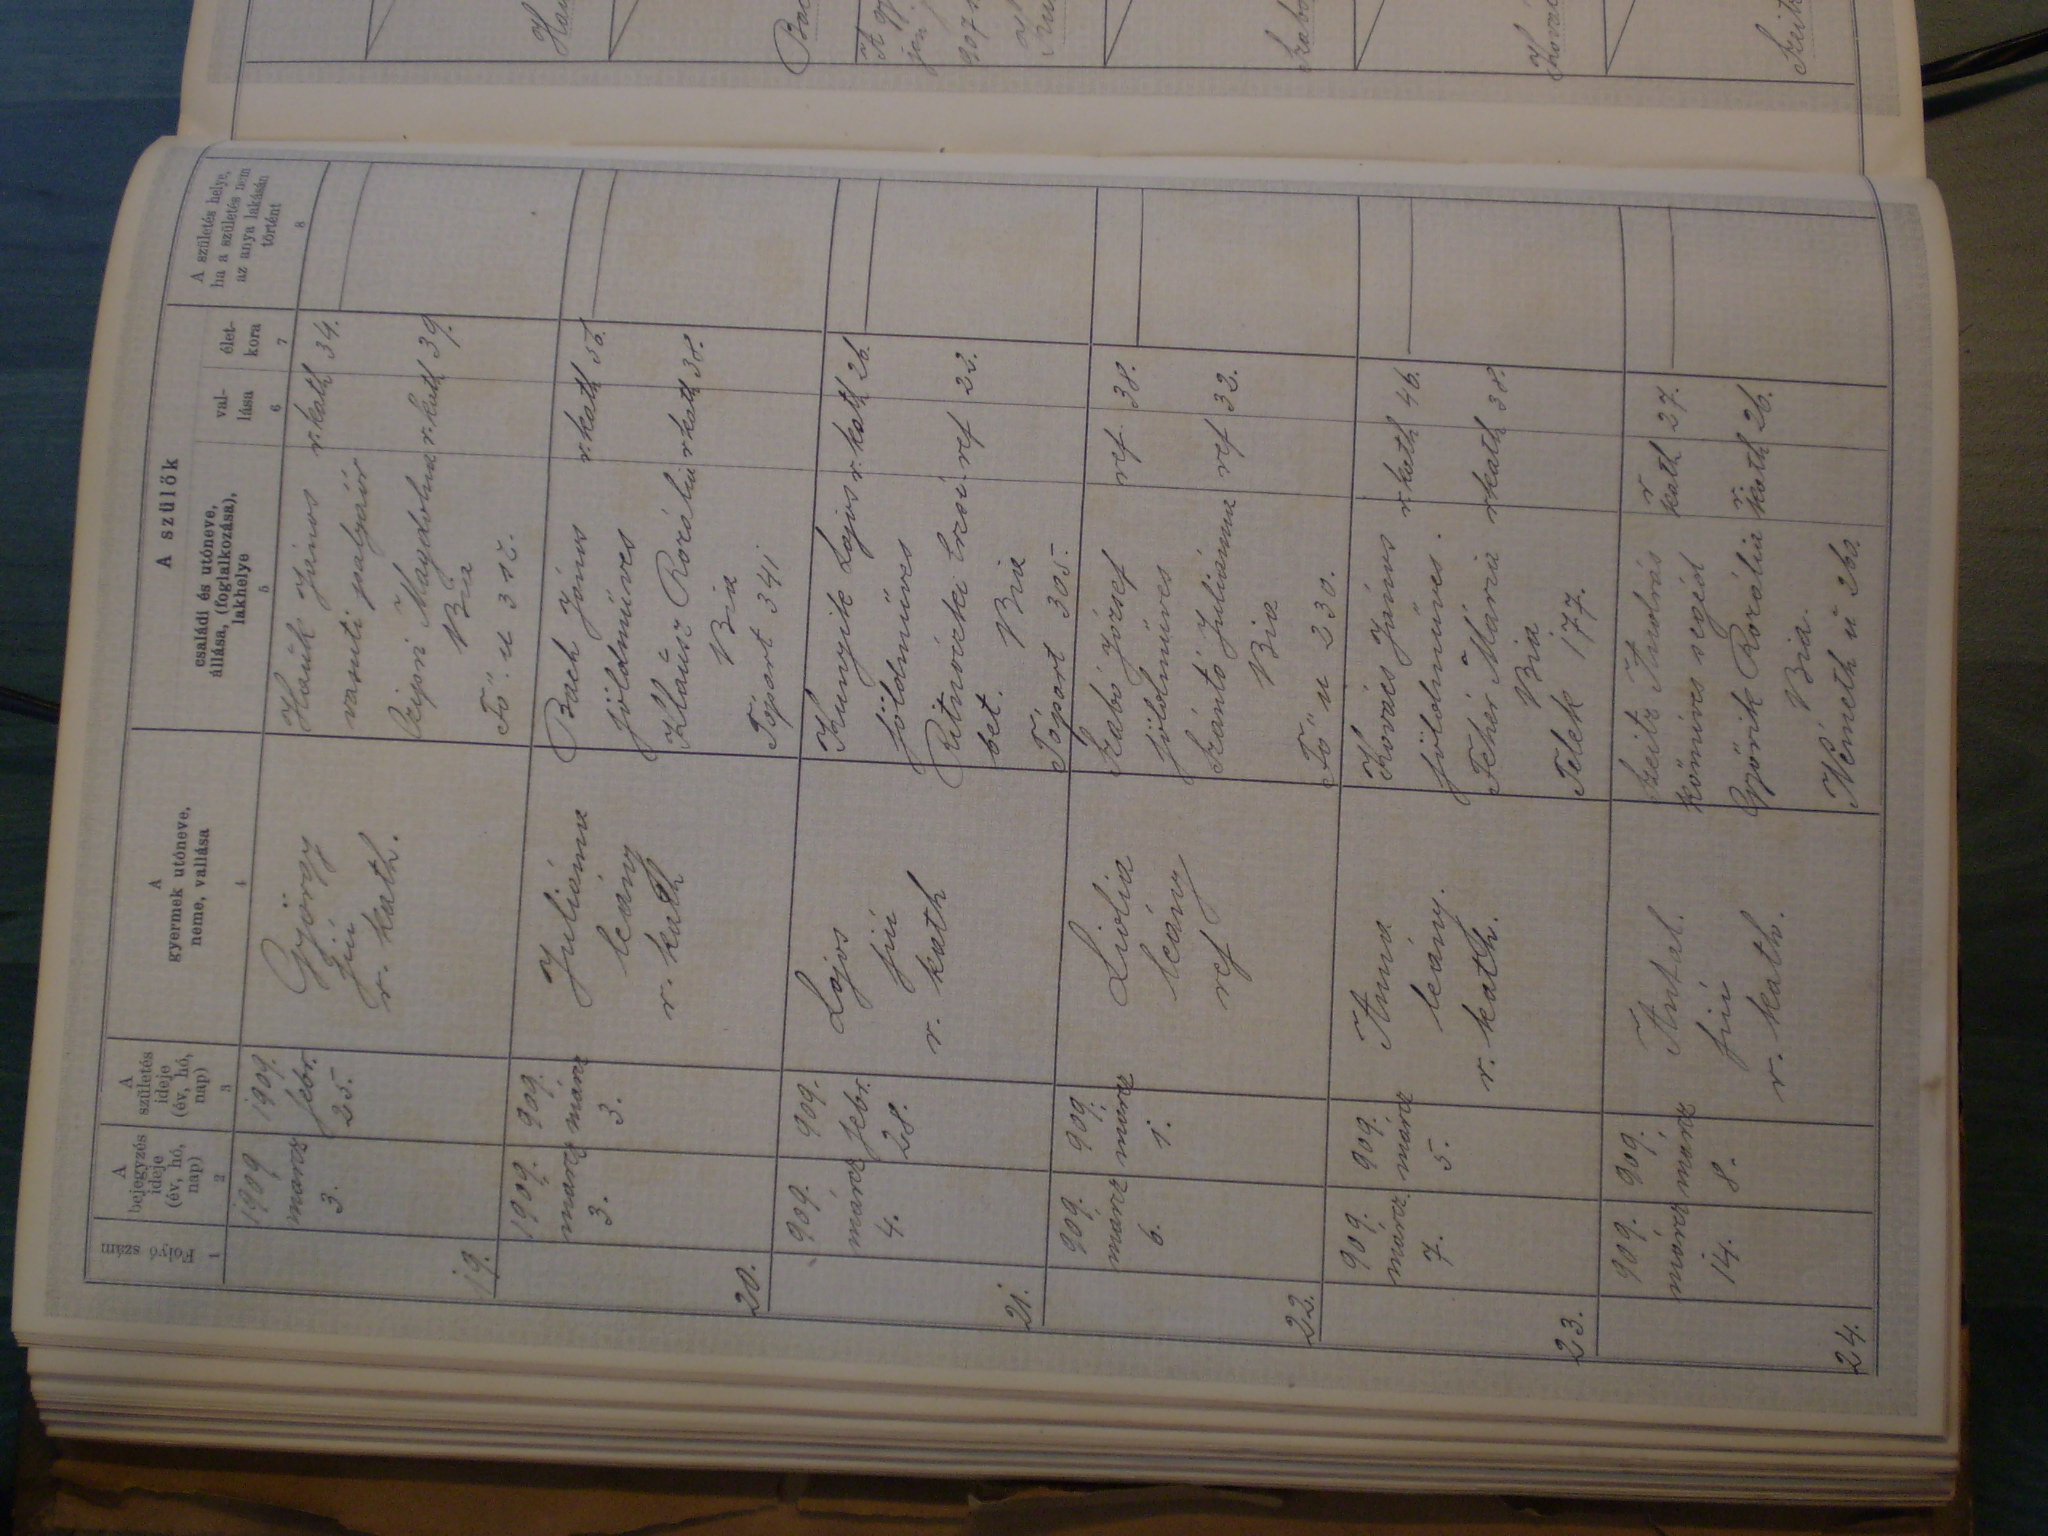 A szülők
Folyó szám
A
bejegyzés
ideje
(év, hó,
nap)
A
születés
ideje
(év, hó,
nap)
A
gyermek utóneve,
neme, vallása
családi és utóneve,
állása, (foglalkozása),
lakhelye
val-
lása
élet-
kora
A születés helye,
ha a születés nem
az anya lakásán
történt
1
2
3
4
5
6
7
8
19.
1909
marcz
3.
1909.
febr.
25.
György
fiú
r. kath.
Hauk János
vasuti pályaőr
Magdolna
Bia
Fő u 312.
r. kath 34.
r. kath 39.
20.
1909.
márcz
3.
909.
márcz
3.
Juliánna
leány
r. kath
Bach János
földmüves
Klausz Rozália
Bia
Tópart 341
r. kath 56.
r kath 38.
21.
909.
márcz
4.
909.
febr.
28.
Lajos
fiú
r. kath
Kunyik Lajos
földmüves
Erzsi
bet. Bia
Tópart 305.
r. kath 26.
ref 22.
22.
909.
márcz
6.
909.
márcz
1.
Lidia
leány
ref
Szabó József
földmüves
Szántó Juliánna
Bia
Fő u 230.
ref. 38.
ref 32.
23.
909.
márcz.
7.
909.
márcz
5.
Anna
leány.
r. kath.
Kovács János
földmüves.
Fehér Mária
Bia
Telek 177.
r kath 46.
r kath 38.
24.
909.
márcz
14.
909.
márcz
8.
Antal.
fiú
r. kath.
Szeitz András
kőmüves segéd
Györik Rozália
Bia.
Németh u 260.
r
kath 27.
r.
kath 26.